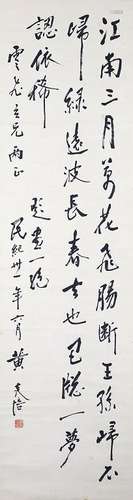 江南三月萬花飛腸斷王孫歸不
歸綠遠波長春去也已殘一夢
認依稀
題畫一絕
雲先主兄兩正
民紀卅一年六月黃炎培